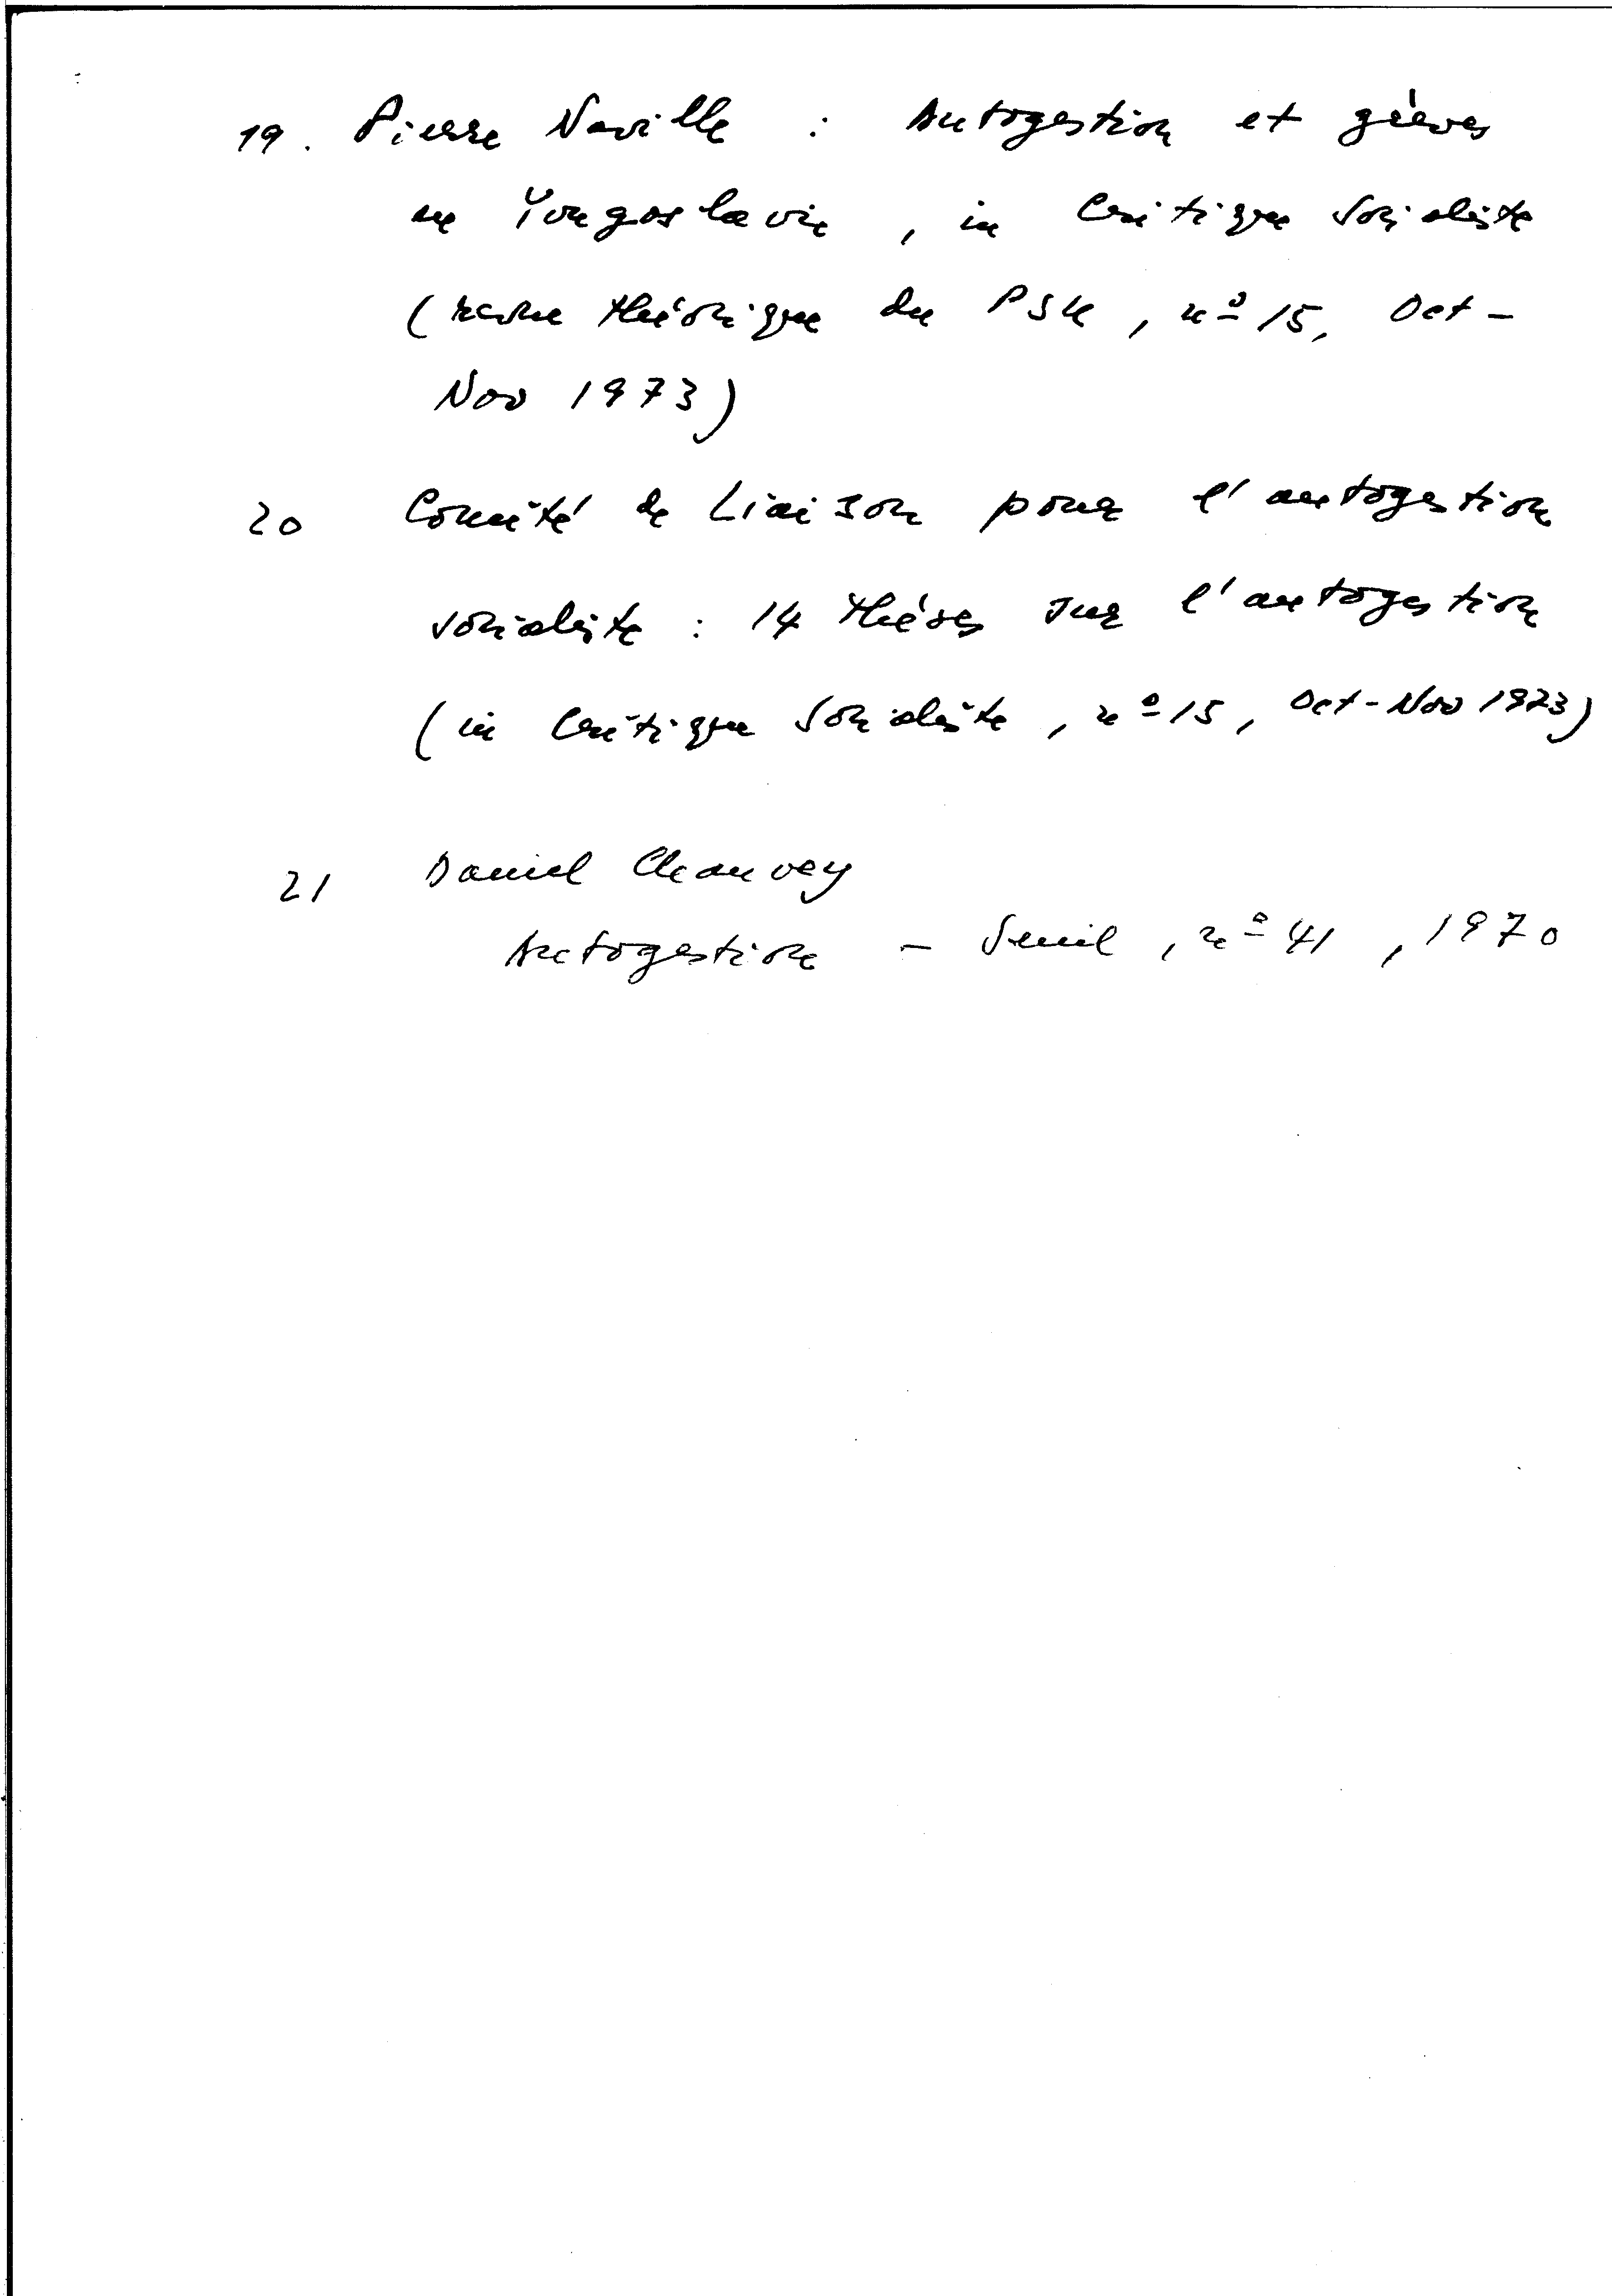 19. Pierre Naville : Autogestion et grèves
en Yougoslavie, in Critique Socialiste
(revue théorique du PSU, nº 15, Oct-
Nov 1973)
20 Comité de Liaison pour l'autogestion
socialiste : 14 thèses sur l'autogestion
(in Critique Socialiste, nº 15, Oct-Nov 1973)
21 Daniel Chauvey
Autogestion - Seuil, nº 41, 1970